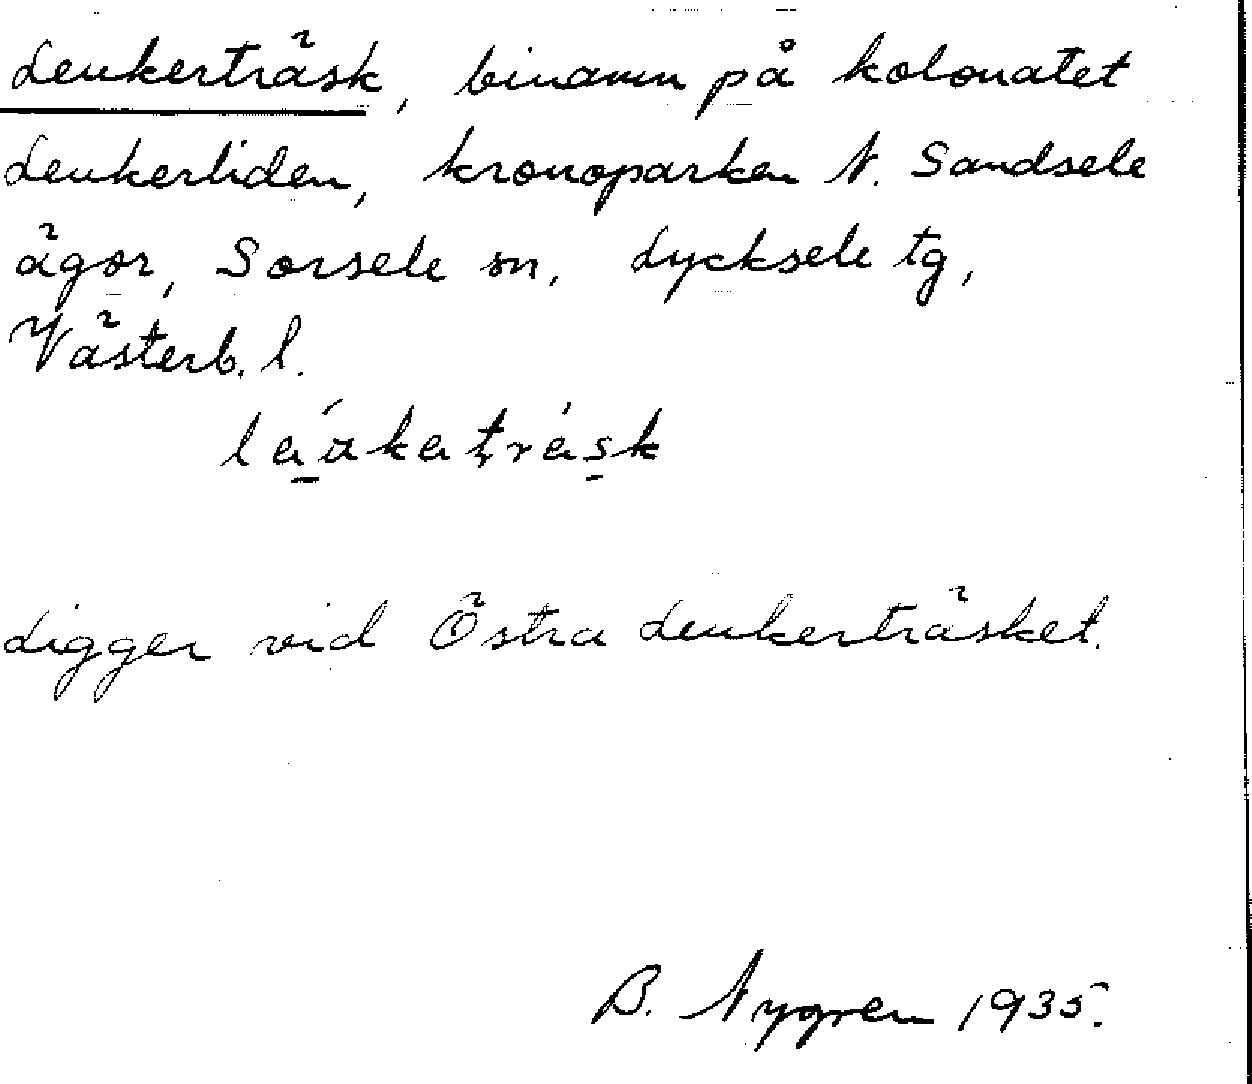 Leukerträsk, binamn på kolonatet
Leukerliden, kronoparken N. Sandsele
ägor, Sorsele sn, Lycksele tg,
Västerb. l.
Ligger vid Östra Leukerträsket.
B. Nygren 1935.